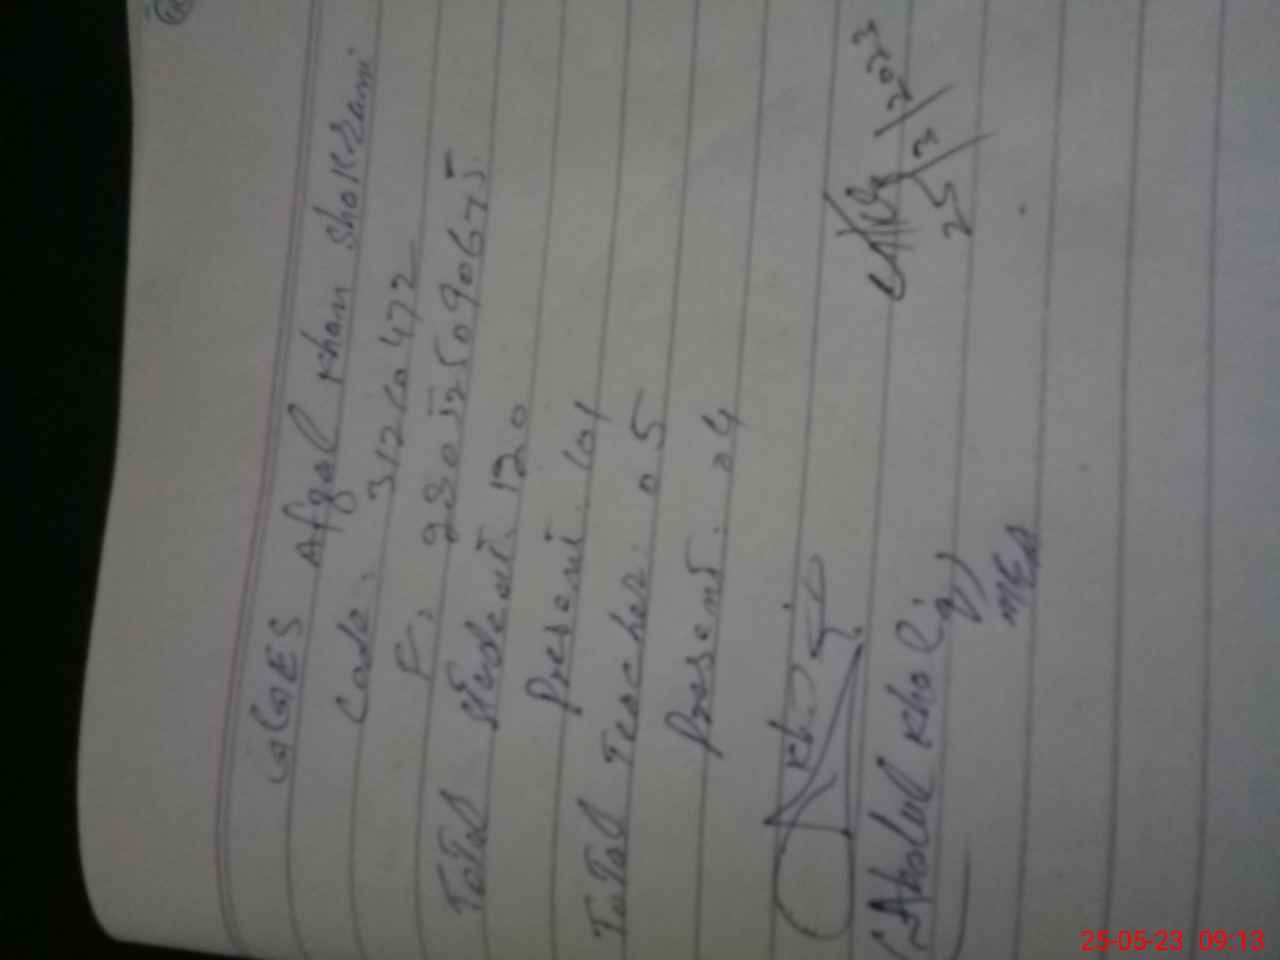 GGES Afzal Khan Shokrani
Code: 31260472
P: 923052509
Total student: 120
Present: 101
Total Teacher: 05
Present: 04
(Abdul Khaliq)
MEA
25/3/2023
25-05-23 09:13